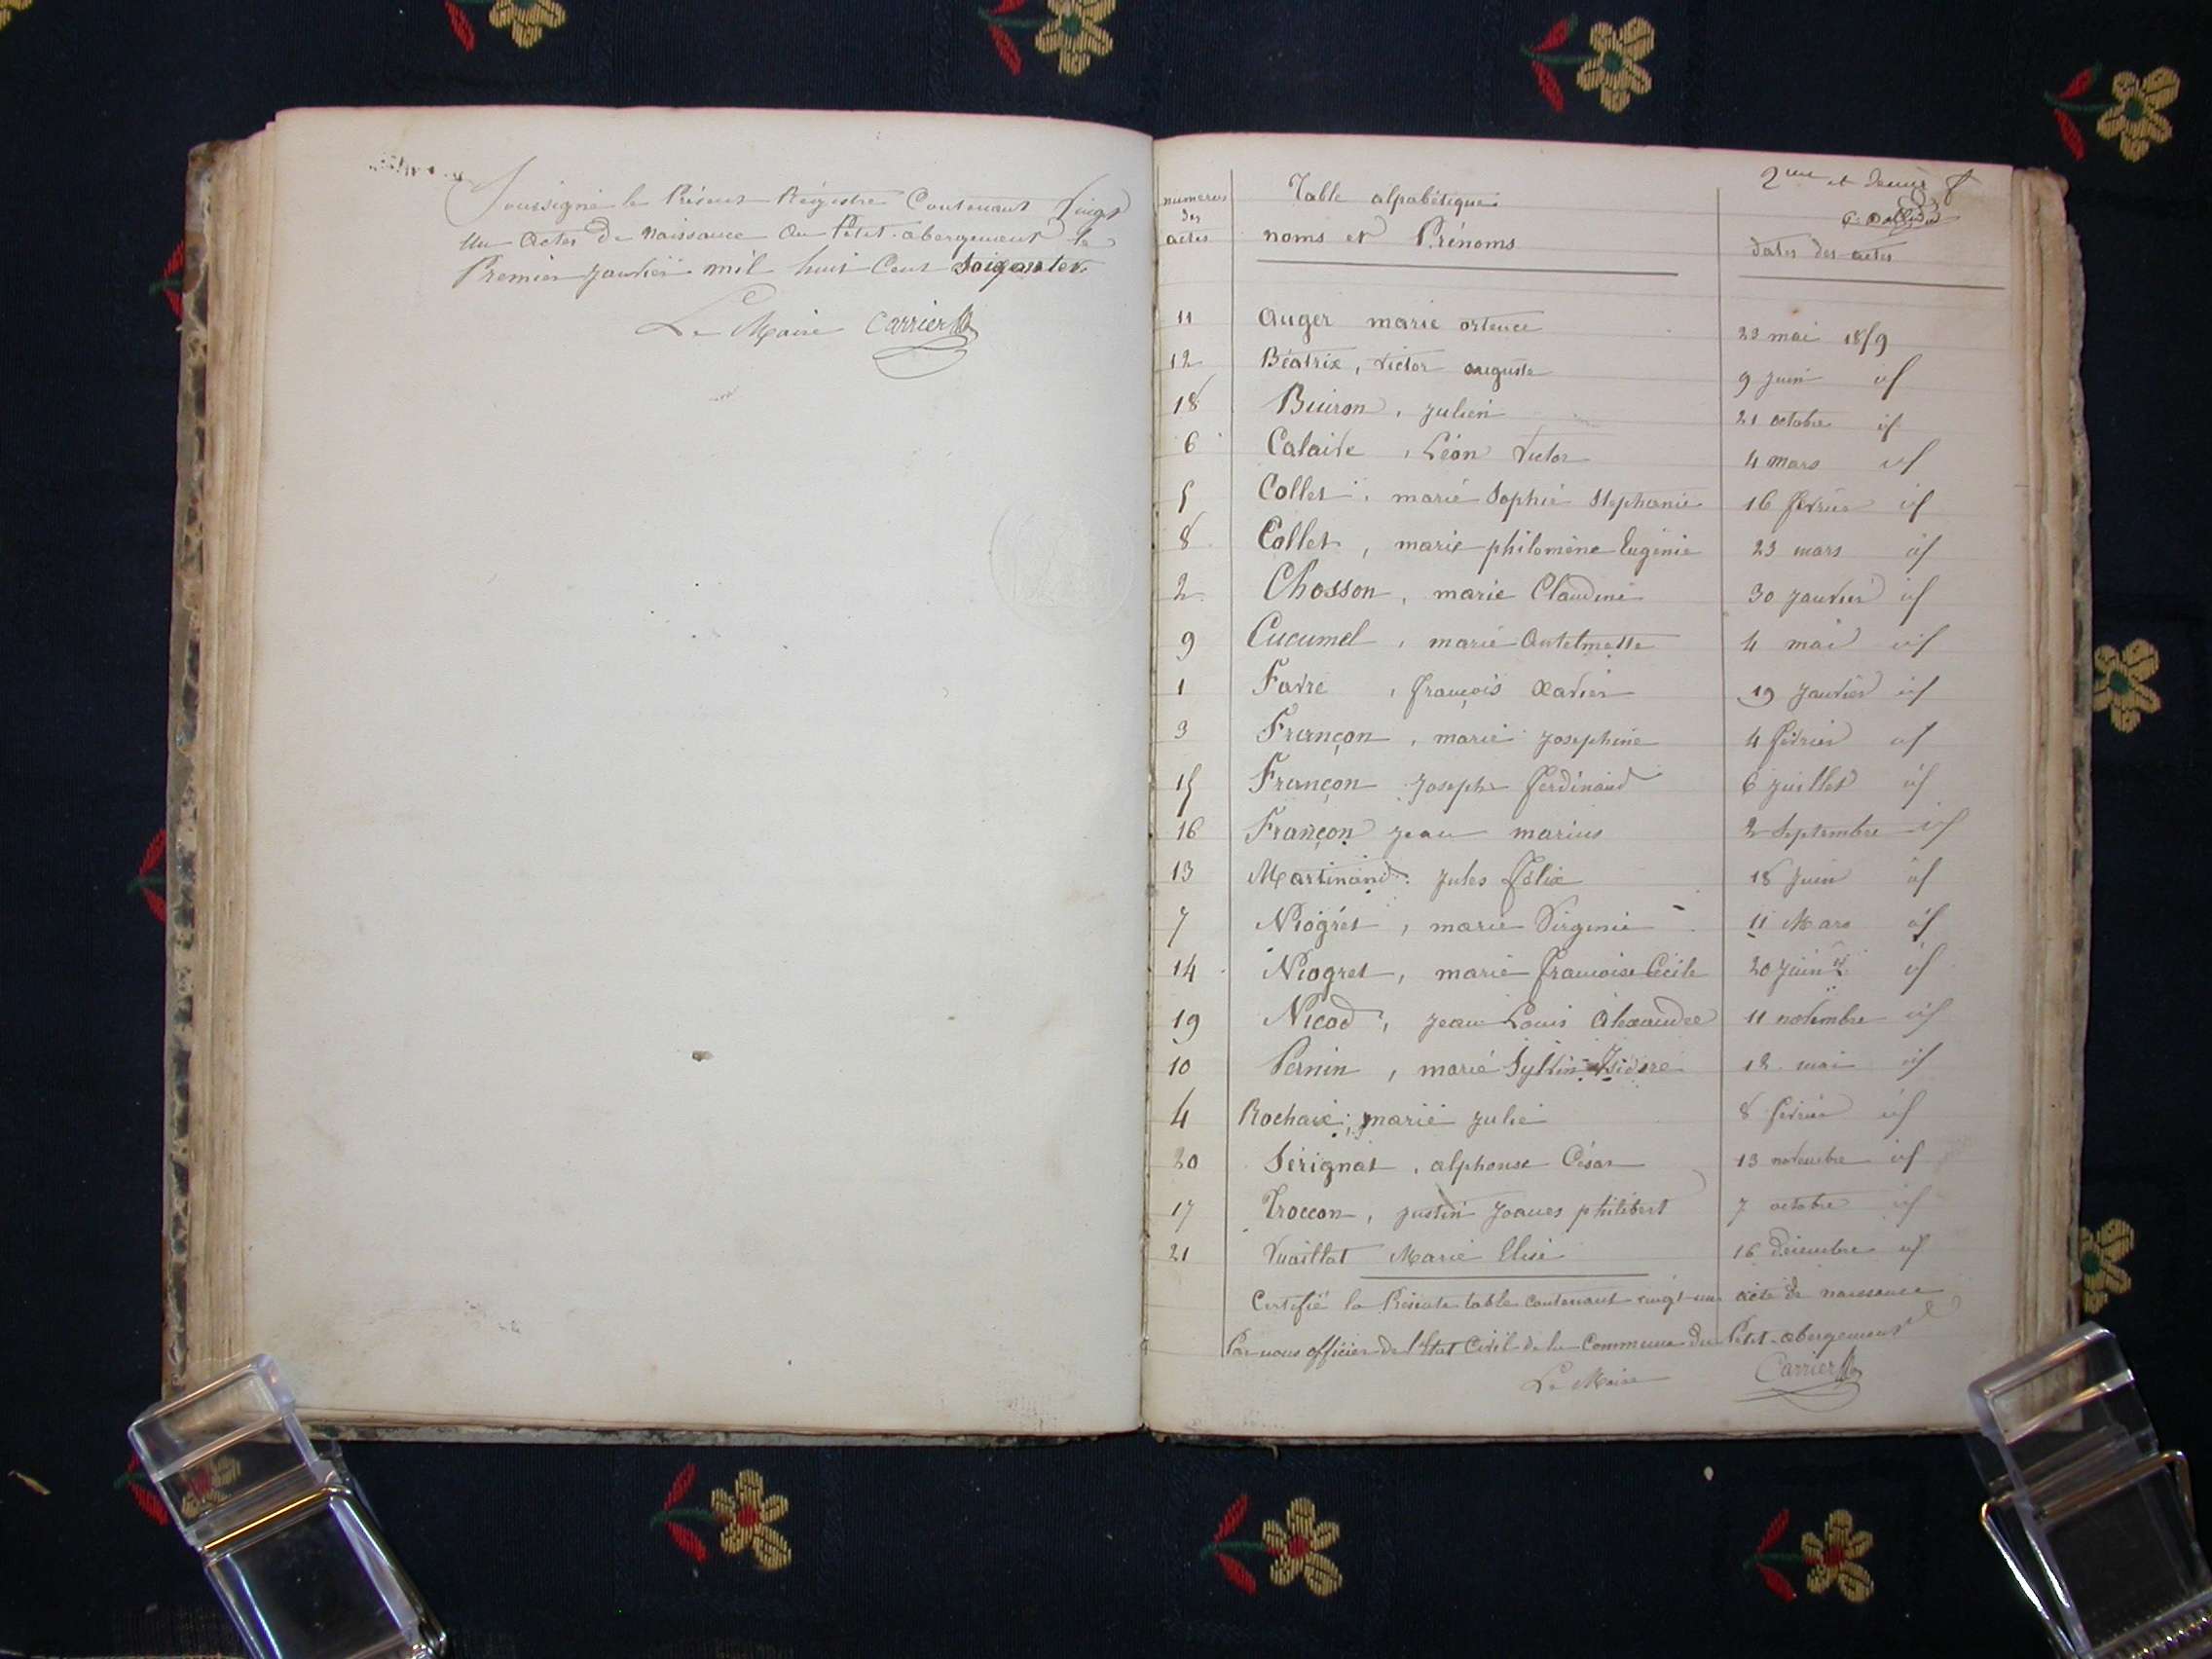 Soussigné le Présent Régistre Contenant Vingt
un actes de naissance au Petit-abergement le
Premier janvier mil huit Cent Soixante
Le Maire Carrier
2me et
numeros des actes
Table alpabétique
noms et Prénoms
dates des actes
11 Auger marie ortence 23 mai 1859
12 Béatrix, victor auguste 9 juin id
18 Buiron, julien 21 octobre id
6 Calaive, Léon victor 4 mars id
5 Collet, marie Sophie Stephanie 16 février id
8 Collet, marie philomène Eugénie 23 mars id
2 Chosson, marie Claudine 30 janvier id
9 Cucumel, marie Antelmette 4 mai id
1 Favre, françois xavier 19 janvier id
3 Françon, marie josephine 4 février id
15 Françon joseph ferdinand 6 juillet id
16 Françon jean marius 2 Septembre id
13 Martinand jules félix 18 juin id
7 Niogret, marie Virginie 11 Mars id
14 Niogret, marie francoise Cécile 20 juin id
19 Nicod, jean Louis Alexandre 11 novembre id
10 Pernin, marie Sylvin Isidore 12 mai id
4 Rochaix, marie julie 8 février id
20 Sérignat, alphonse César 13 novembre id
17 Troccon, justin joaues philibert 7 octobre id
21 Vuaillat Marie Elise 16 décembre id
Certifié la Présente table contenant vingt-un acte de naissance
Par nous officier de l'Etat Civil de la Commune du Petit-abergement
Le Maire Carrier